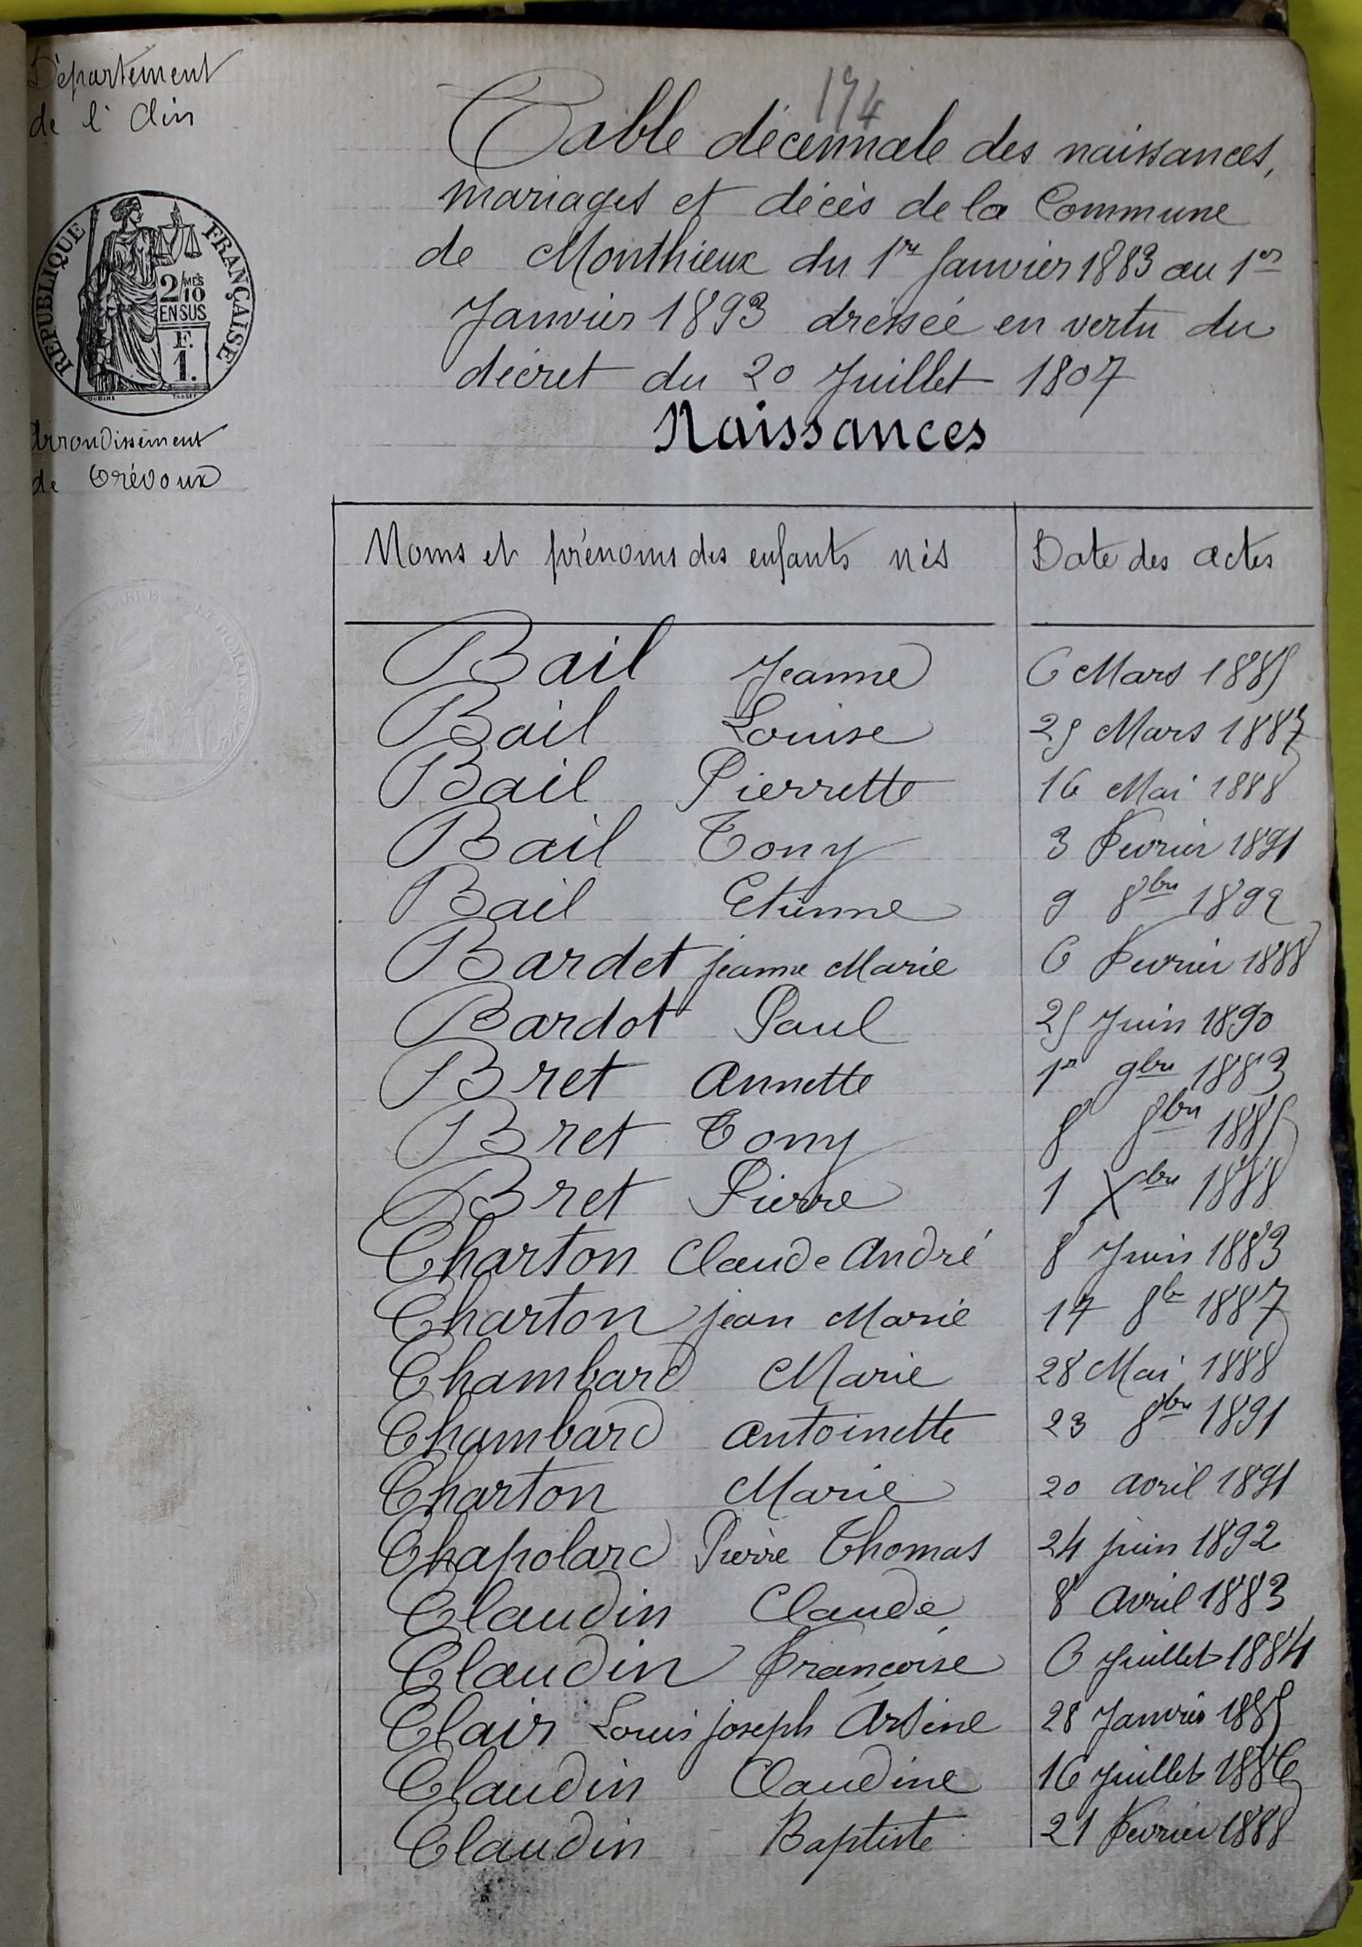 Département
de l'Ain
174
Table décennale des naissances,
mariages et décès de la Commune
de Monthieux du 1er Janvier 1883 au 1er
Janvier 1893 dressée en vertu du
décret du 20 Juillet 1807
Naissances
REPUBLIQUE FRANÇAISE
2/10 MES
EN SUS
F.
1.
Arrondissement
de Trévoux
Noms et prénoms des enfants nés Date des actes
Bail Jeanne 6 Mars 1885
Bail Louise 25 Mars 1887
Bail Pierrette 16 Mai 1888
Bail Tony 3 Fevrier 1891
Bail Etienne 9 8bre 1892
Bardet jeanne Marie 6 Fevrier 1888
Bardot Paul 25 Juin 1890
Bret Annette 1er 9bre 1883
Bret Tony 8 8bre 1885
Bret Pierre 1 Xbre 1888
Charton Claude André 8 Juin 1883
Charton jean Marie 17 8b 1887
Chambard Marie 28 Mai 1888
Chambard Antoinette 23 8bre 1891
Charton Marie 20 avril 1891
Chapolard Pierre Thomas 24 juin 1892
Claudin Claude 8 Avril 1883
Claudin Françoise 6 Juillet 1884
Clair Louis joseph Arsène 28 Janvier 1885
Claudin Claudine 16 Juillet 1886
Claudin Baptiste 21 Fevrier 1888